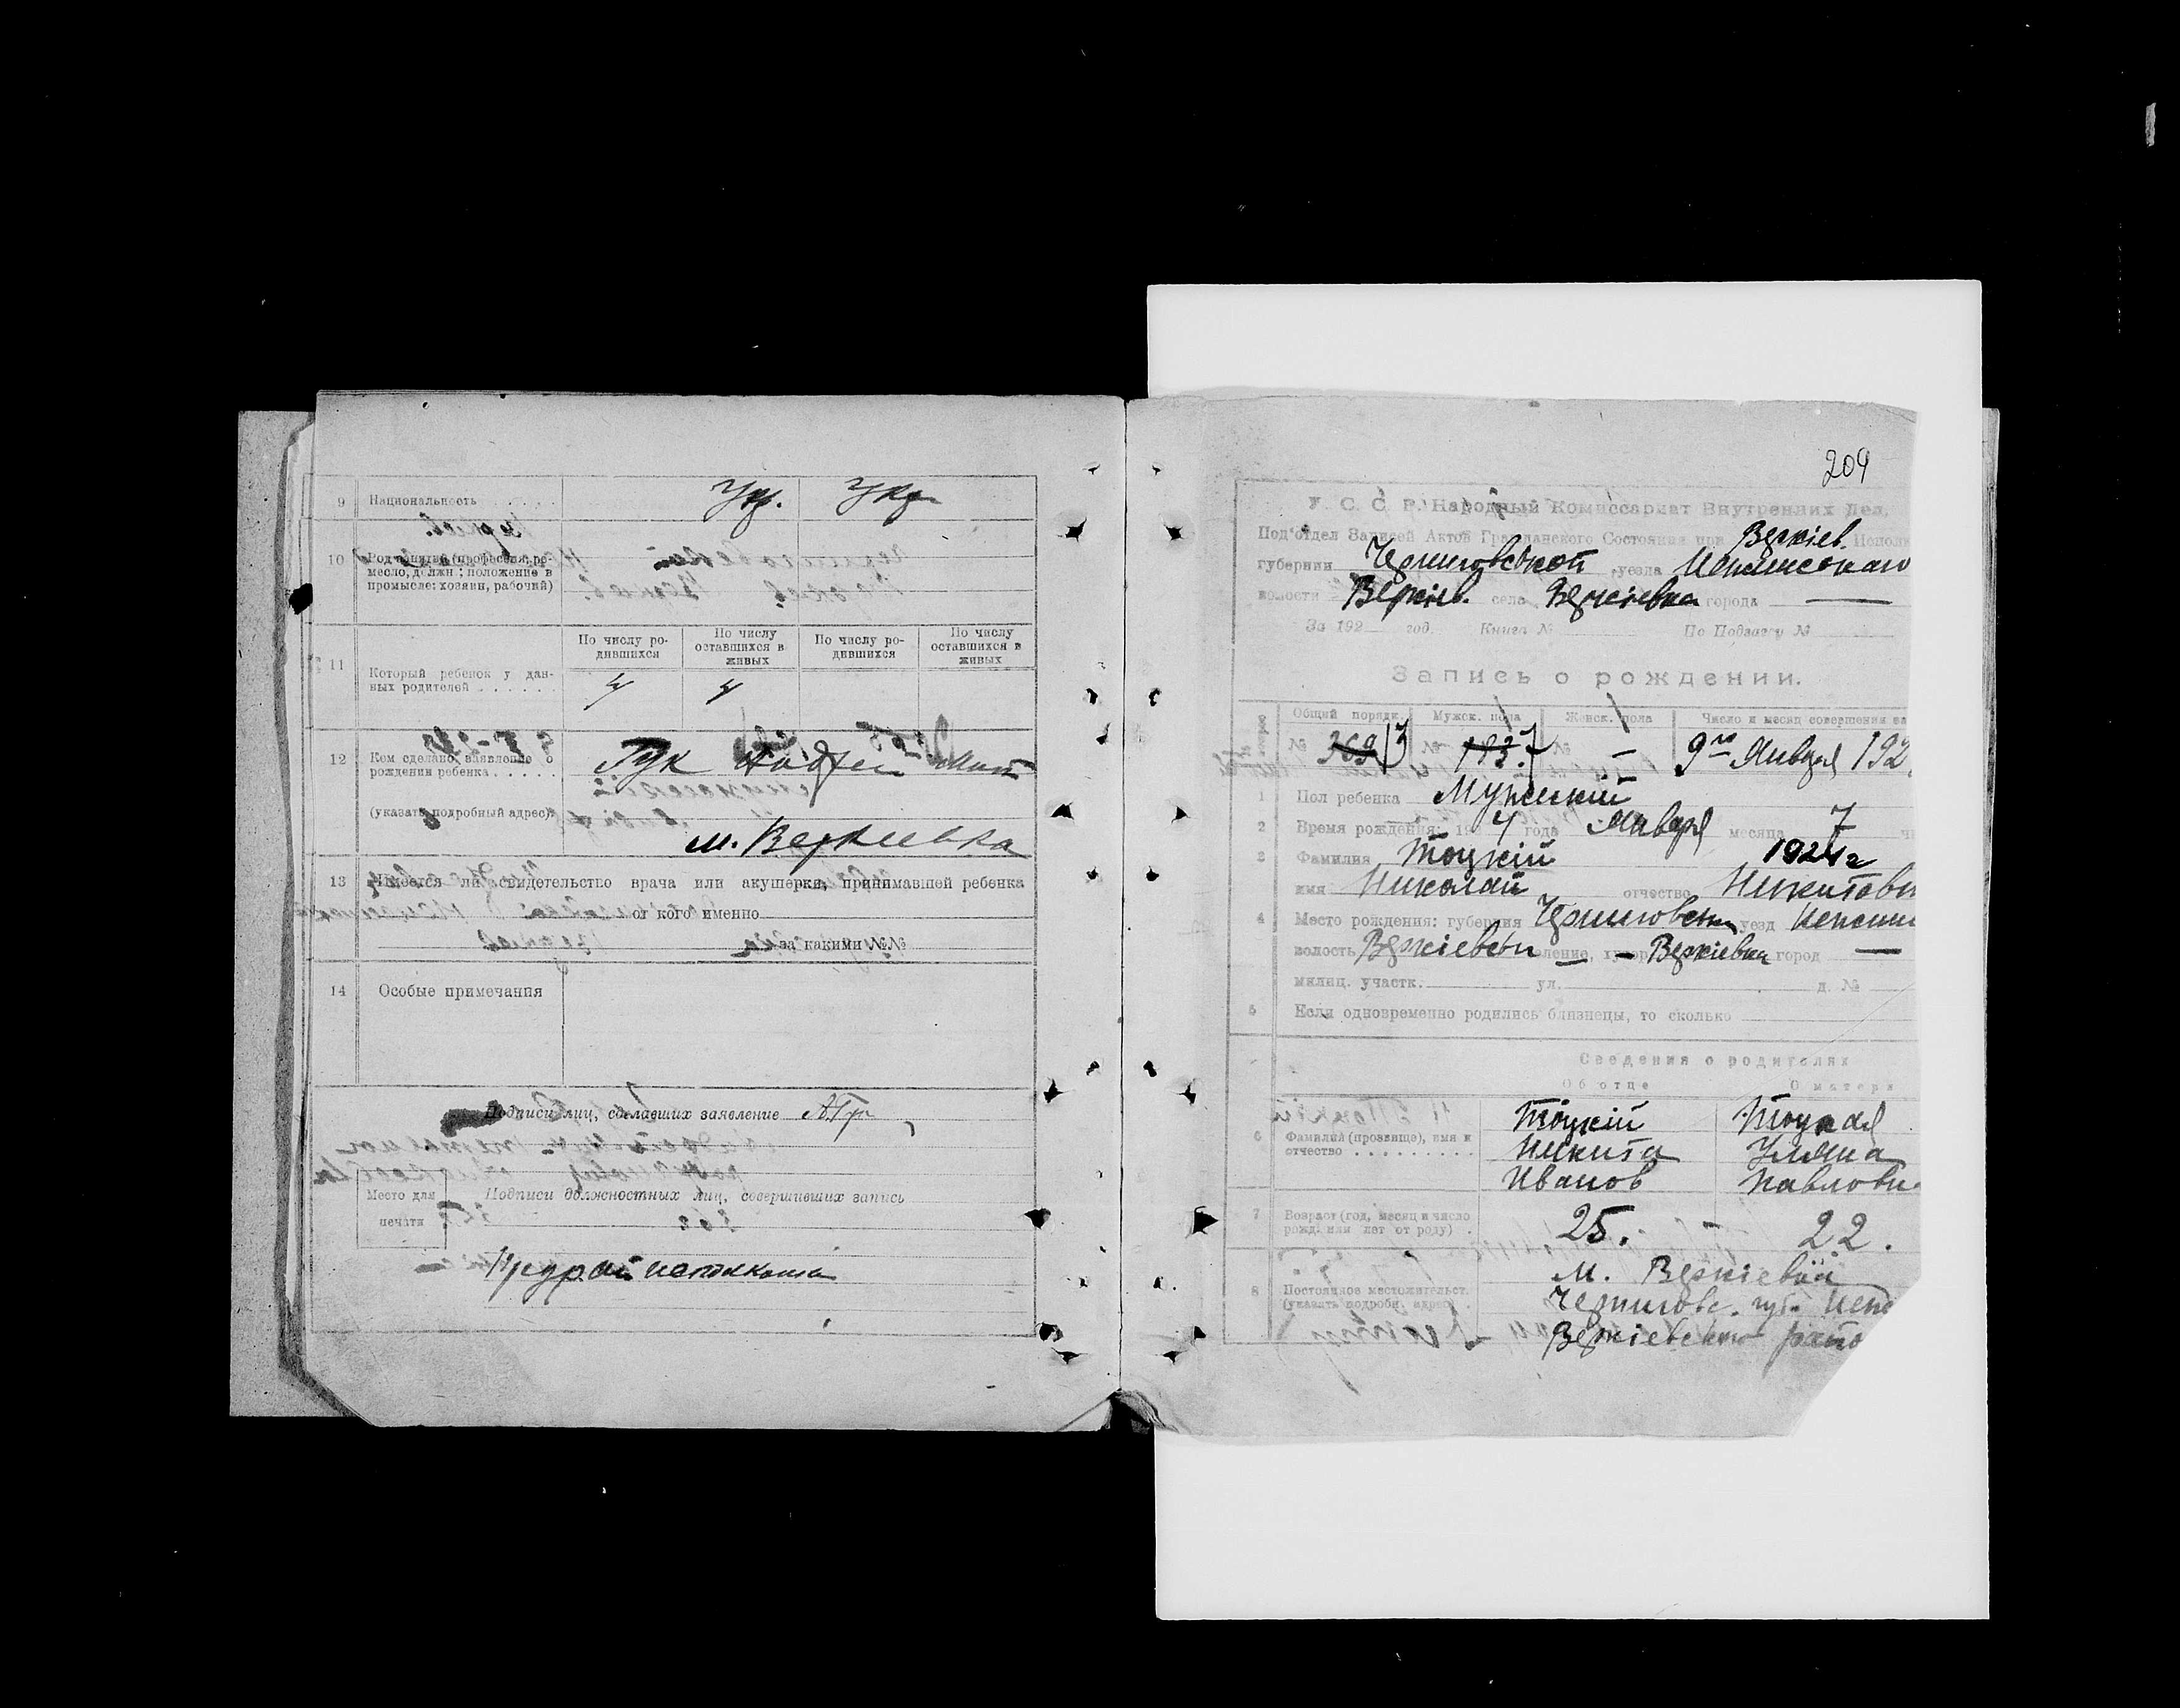 9 Национальность . . . . . Укр. Укр
10 Род занятий (профессия, ре-
месло, должн.: положение в
промысле: хозяин, рабочий)
11 Который ребенок у дан-
ных родителей . . . . . . .
По числу ро-
дившихся
По числу
оставшихся в
живых
По числу ро-
дившихся
По числу
оставшихся в
живых
4 4
12 Кем сделано заявление о
рождении ребенка . . . . . Гук
(указать подробный адрес)
м. Веркиевка
13 Имеется ли свидетельство врача или акушерки, принимавшей ребенка
от кого именно
за какими №№
14 Особые примечания
Подписи лиц, сделавших заявление А. Гук
Место для
печати
Подписи должностных лиц, совершивших запись
209
У. С. С. Р. Народный Комиссариат Внутренних Дел.
Под'отдел Записей Актов Гражданского Состояния при Веркіев. Исполн
губернии Черниговской уезда Неженского
волости Веркіев. села Веркіевка города —
За 192 год. Книга № По Подзагсу №
Запись о рождении.
Общий порядк. Мужск. пола Женск. пола Число и месяц совершения за
№ 369 13 № 193. 7 № — 9го Января 192
1 Пол ребенка Мужескій
2 Время рождения: 19 4 года Января месяца 7 чи
1924 г
3 Фамилия Тоцкій
имя Николай отчество Никитови
4 Место рождения: губерния Черниговск уезд Нежин
волость Веркіевск — Веркіевка город —
милиц. участк. ул. д. №
5 Если одновременно родились близнецы, то сколько
Сведения о родителях
Об отце О матери
6 Фамилия (прозвище), имя и
отчество . . . . . . . . .
Тоцкій
Никита
Иванов
Тоцкая
Улляна
Павловн
7 Возраст (год, месяц и число
рожд. или лет от роду) . 25. 22.
8 Постоянное местожительст.
(указать подробн. адрес) .
М. Веркіевка
Черниговс. губ. Неж
Веркіевского райо